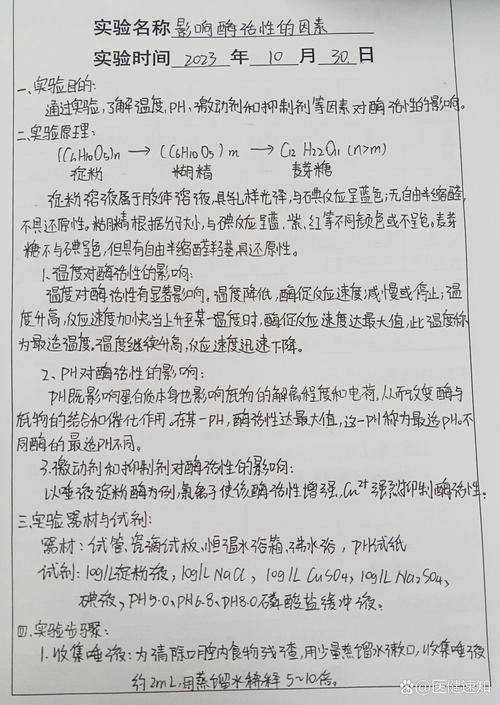 实验名称 影响酶活性的因素
实验时间 2023 年 10 月 30 日
一、实验目的:
通过实验,了解温度、PH、激动剂和抑制剂等因素对酶活性的影响。
二、实验原理:
(C6H10O5)n → (C6H10O5)m → C12H22O11 (n>m)
淀粉 糊精 麦芽糖
淀粉溶液属于胶体溶液,具乳样光泽,与碘反应呈蓝色;无自由半缩醛,
不具还原性。糊精根据分子大小,与碘反应呈蓝、紫、红等不同颜色或不呈色。麦芽
糖不与碘呈色,但具有自由半缩醛羟基,具还原性。
1.温度对酶活性的影响:
温度对酶活性有显著影响。温度降低,酶促反应速度减慢或停止;温
度升高,反应速度加快。当上升至某一温度时,酶促反应速度达最大值,此温度称
为最适温度。温度继续升高,反应速度迅速下降。
2、PH对酶活性的影响:
PH既影响蛋白质本身也影响底物的解离程度和电荷,从而改变酶与
底物的结合和催化作用。在某一PH,酶活性达最大值,这一PH称为最适PH。不
同酶的最适PH不同。
3.激动剂和抑制剂对酶活性的影响:
以唾液淀粉酶为例,氯离子使该酶活性增强,Cu2+强烈抑制酶活性。
三、实验器材与试剂:
器材:试管、瓷滴试板、恒温水浴箱、沸水浴,PH试纸
试剂:10g/L淀粉液,10g/L NaCl,10g/L CuSO4,10g/L Na2SO4、
碘液、PH5.0、PH6.8、PH8.0磷酸盐缓冲液。
四、实验步骤:
1.收集唾液:为清除口腔内食物残渣,用少量蒸馏水漱口,收集唾液
约2mL,用蒸馏水稀释5~10倍。
@医健速知